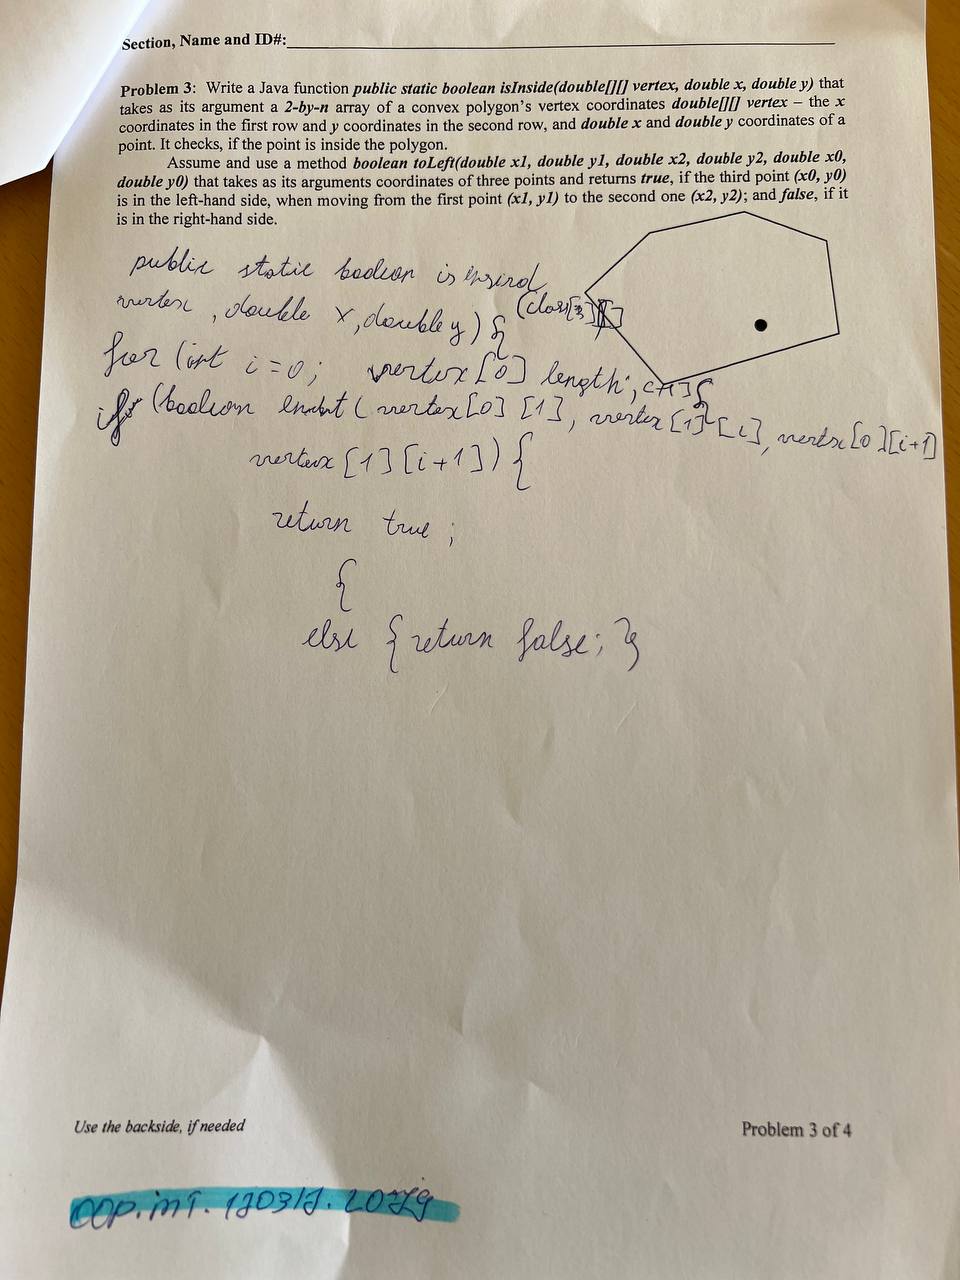 Section, Name and ID#:
Problem 3: Write a Java function public static boolean isInside(double[][] vertex, double x, double y) that
takes as its argument a 2-by-n array of a convex polygon's vertex coordinates double[][] vertex – the x
coordinates in the first row and y coordinates in the second row, and double x and double y coordinates of a
point. It checks, if the point is inside the polygon.
Assume and use a method boolean toLeft(double x1, double y1, double x2, double y2, double x0,
double y0) that takes as its arguments coordinates of three points and returns true, if the third point (x0, y0)
is in the left-hand side, when moving from the first point (x1, y1) to the second one (x2, y2); and false, if it
is in the right-hand side.
public static boolean
vertex, double x, double y) {
for (int i=0; vertex [0] length;
if (boolean ( vertex[0] [1], vertex [1] [i], vertex [0][i+1]
vertex [1] [i+1]) {
return true ;
{
else { return false; }
Use the backside, if needed
Problem 3 of 4